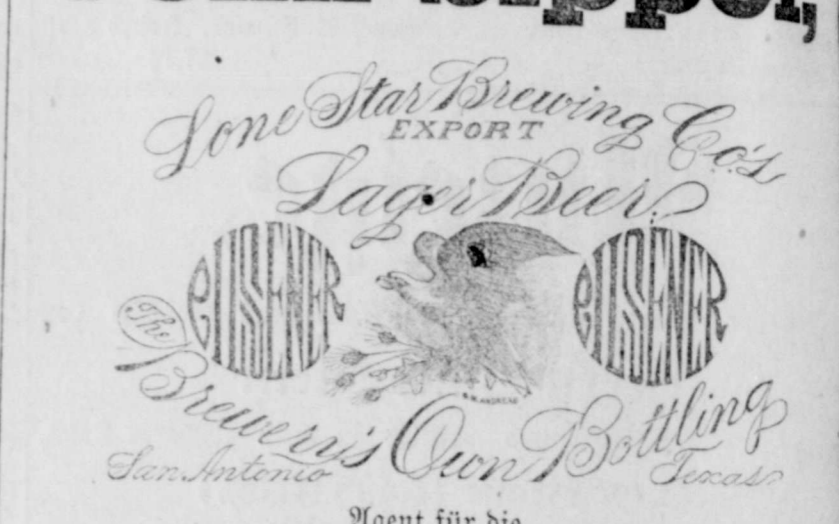 Lone Star Brewing Co's
EXPORT
Lager Beer
PILSENER PILSENER
The
Brewery's Own Bottling
San Antonio Texas
Agent für die